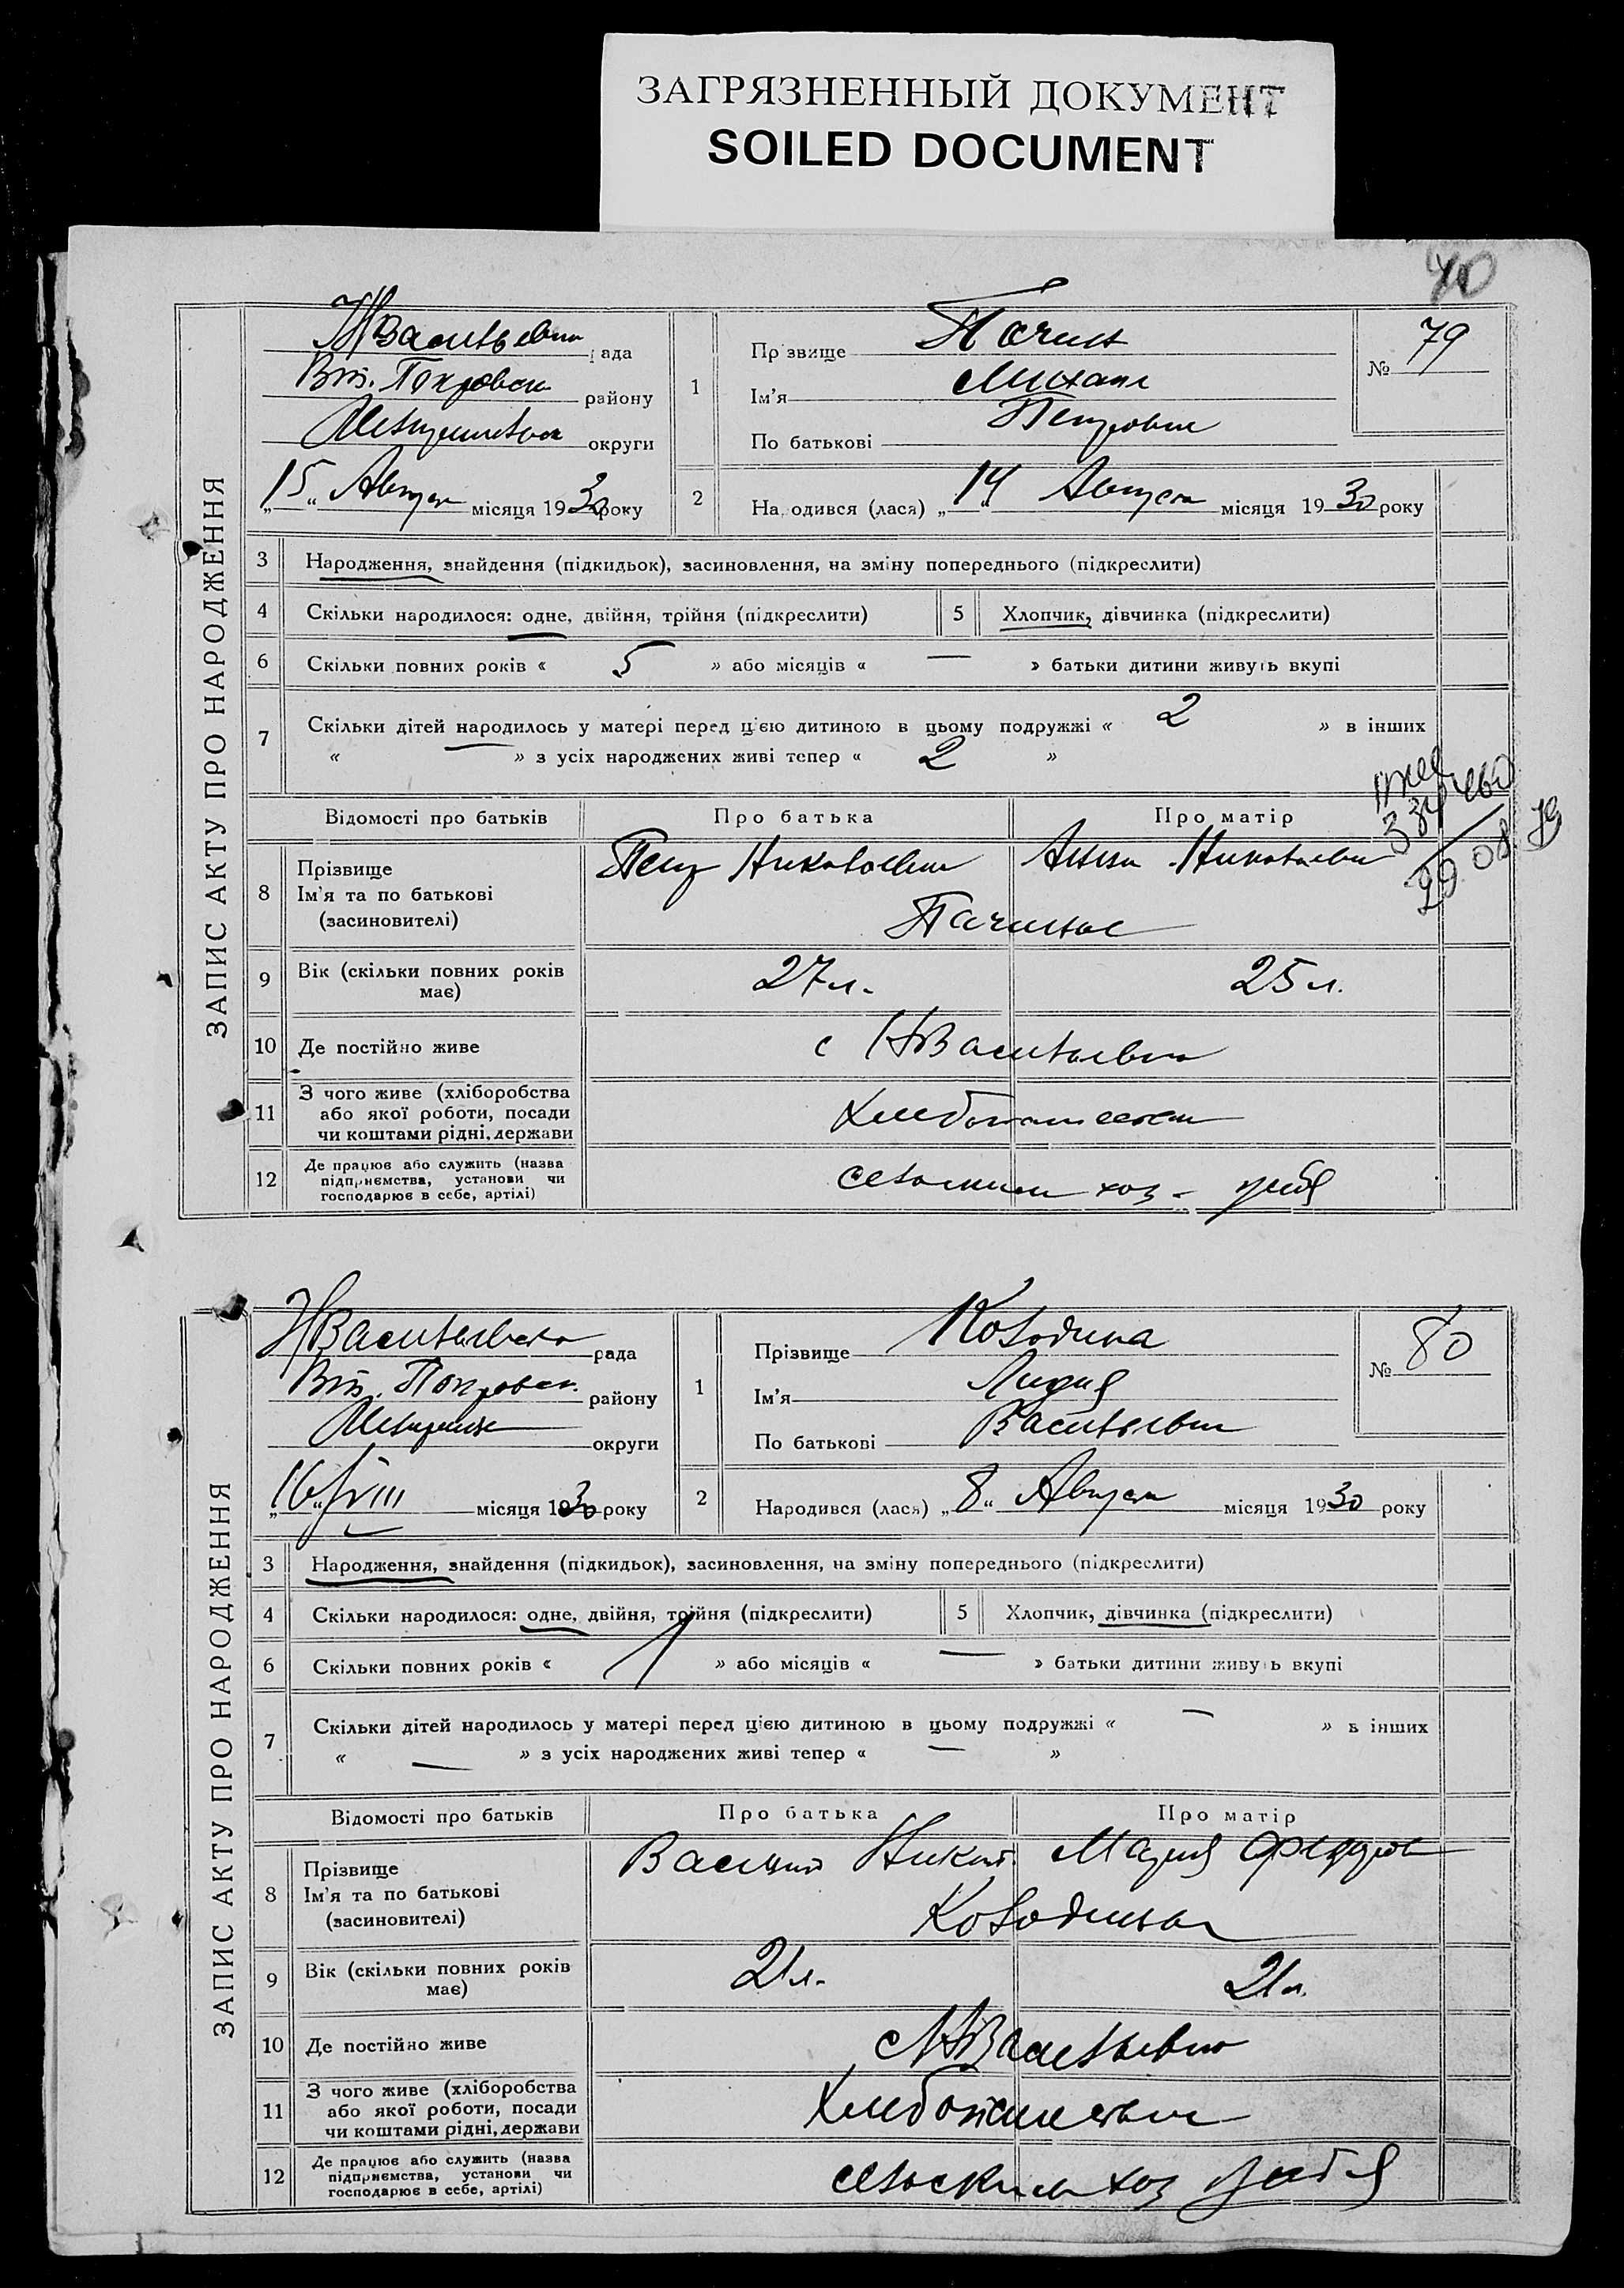 ЗАГРЯЗНЕННЫЙ ДОКУМЕНТ
SOILED DOCUMENT
40
ЗАПИС АКТУ ПРО НАРОДЖЕННЯ
рада
Вт. Покровск району
округи
„15“ Август місяця 1930 року
1
Прізвище Пачин
Ім'я Михаил
По батькові Петрович
№ 79
2 Народився (лася) „14“ Августа місяця 1930 року
3 Народження, знайдення (підкидьок), засиновлення, на зміну попереднього (підкреслити)
4 Скільки народилося: одне, двійня, трійня (підкреслити) 5 Хлопчик, дівчинка (підкреслити)
6 Скільки повних років « 5 » або місяців « — » батьки дитини живуть вкупі
7 Скільки дітей народилось у матері перед цією дитиною в цьому подружжі « 2 » в інших
« — » з усіх народжених живі тепер « 2 »
Відомості про батьків Про батька Про матір
8 Прізвище
Ім'я та по батькові
(засиновителі)
Петр Николаевич Анна Николаевн
Пачины
29 08 79
9 Вік (скільки повних років має) 27 л. 25 л.
10 Де постійно живе с НВасильевка
11 З чого живе (хліборобства
або якої роботи, посади
чи коштами рідні, держави
Хлебопашеством
12 Де працює або служить (назва
підприємства, установи чи
господарює в себе, артілі)
сельским хоз — у себя
ЗАПИС АКТУ ПРО НАРОДЖЕННЯ
НВасильевска рада
Вт. Покровск. району
округи
„16“ VIII місяця 1930 року
1
Прізвище Колодина
Ім'я Лидия
По батькові Васильевн
№ 80
2 Народився (лася) „8“ Августа місяця 1930 року
3 Народження, знайдення (підкидьок), засиновлення, на зміну попереднього (підкреслити)
4 Скільки народилося: одне, двійня, трійня (підкреслити) 5 Хлопчик, дівчинка (підкреслити)
6 Скільки повних років « 1 » або місяців « — » батьки дитини живуть вкупі
7 Скільки дітей народилось у матері перед цією дитиною в цьому подружжі « — » в інших
« — » з усіх народжених живі тепер « — »
Відомості про батьків Про батька Про матір
8 Прізвище
Ім'я та по батькові
(засиновителі)
Василий Никит. Мария Федоров
Колодины
9 Вік (скільки повних років має) 21 л. 21 л.
10 Де постійно живе с НВасильевка
11 З чого живе (хліборобства
або якої роботи, посади
чи коштами рідні, держави
Хлебопашеством
12 Де працює або служить (назва
підприємства, установи чи
господарює в себе, артілі)
сельским хоз у себя